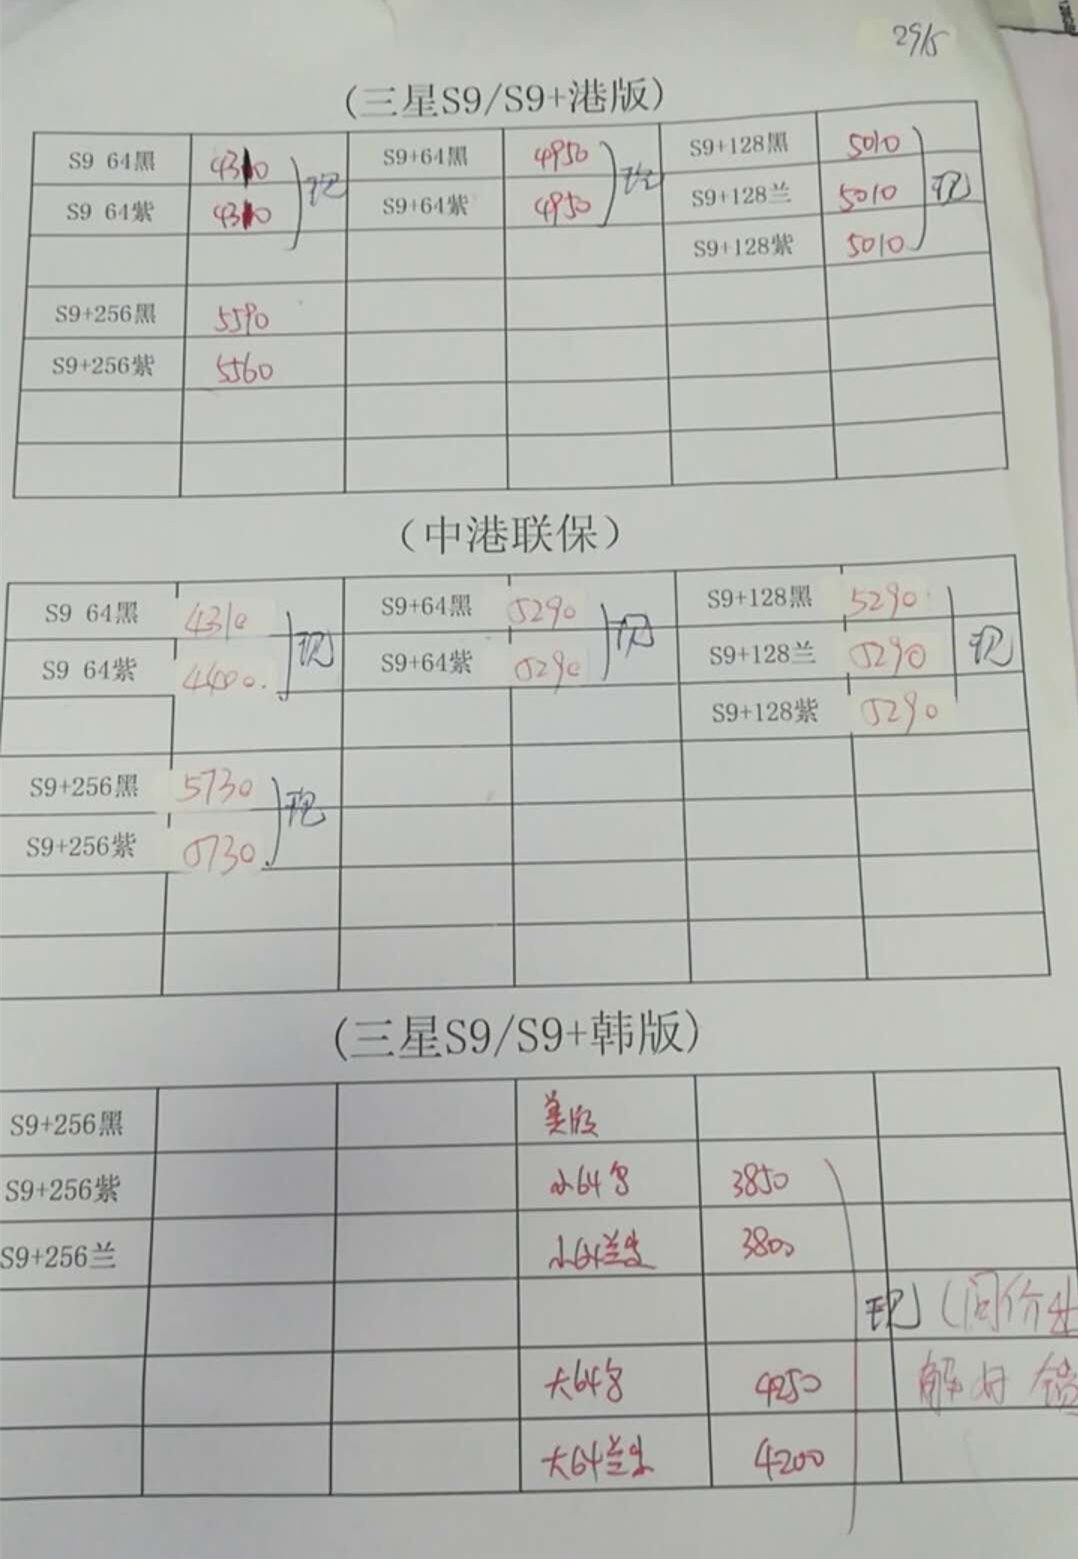 29/5
(三星S9/S9+港版)
S9 64黑 4310 S9+64黑 4950 S9+128黑 5010
S9 64紫 4310 现 S9+64紫 4950 现 S9+128兰 5010 现
S9+128紫 5010
S9+256黑 5590
S9+256紫 5560
(中港联保)
S9 64黑 4310 S9+64黑 5290 S9+128黑 5290
S9 64紫 4400 现 S9+64紫 5290 现 S9+128兰 5290 现
S9+128紫 5290
S9+256黑 5730 现
S9+256紫 5730
(三星S9/S9+韩版)
S9+256黑 美版
S9+256紫 小64 3850
S9+256兰 小64兰 3800
现(问价
大64 4250 解 锁
大64兰 4200